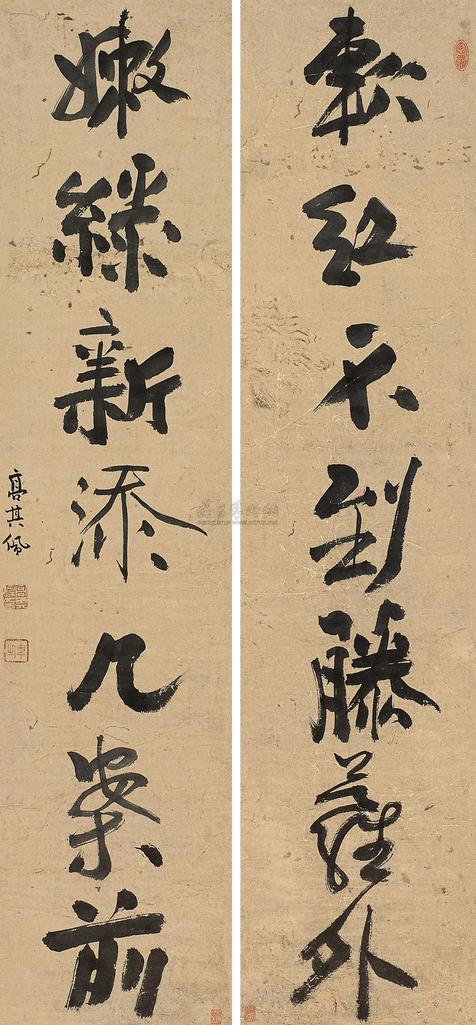 軟紅不到藤蘿外
嫩綠新添几案前
高其佩